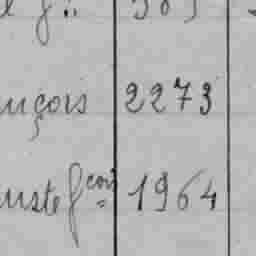 ançois 2273
uste fçois 1964